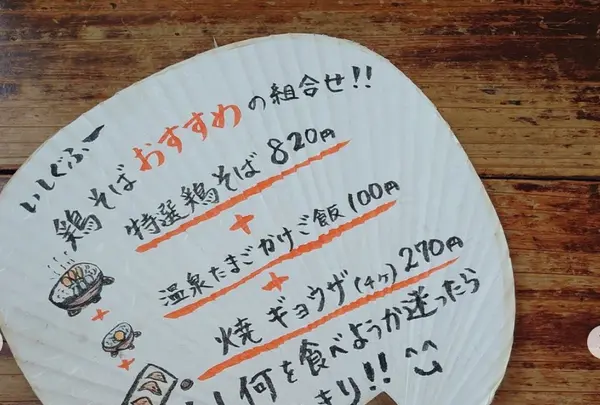 いしぐふー
鶏そばおすすめの組合せ!!
特選鶏そば 820円
+
温泉たまごかけご飯 100円
+
焼ギョウザ(4ヶ) 270円
何を食べようか迷ったら
まり!!